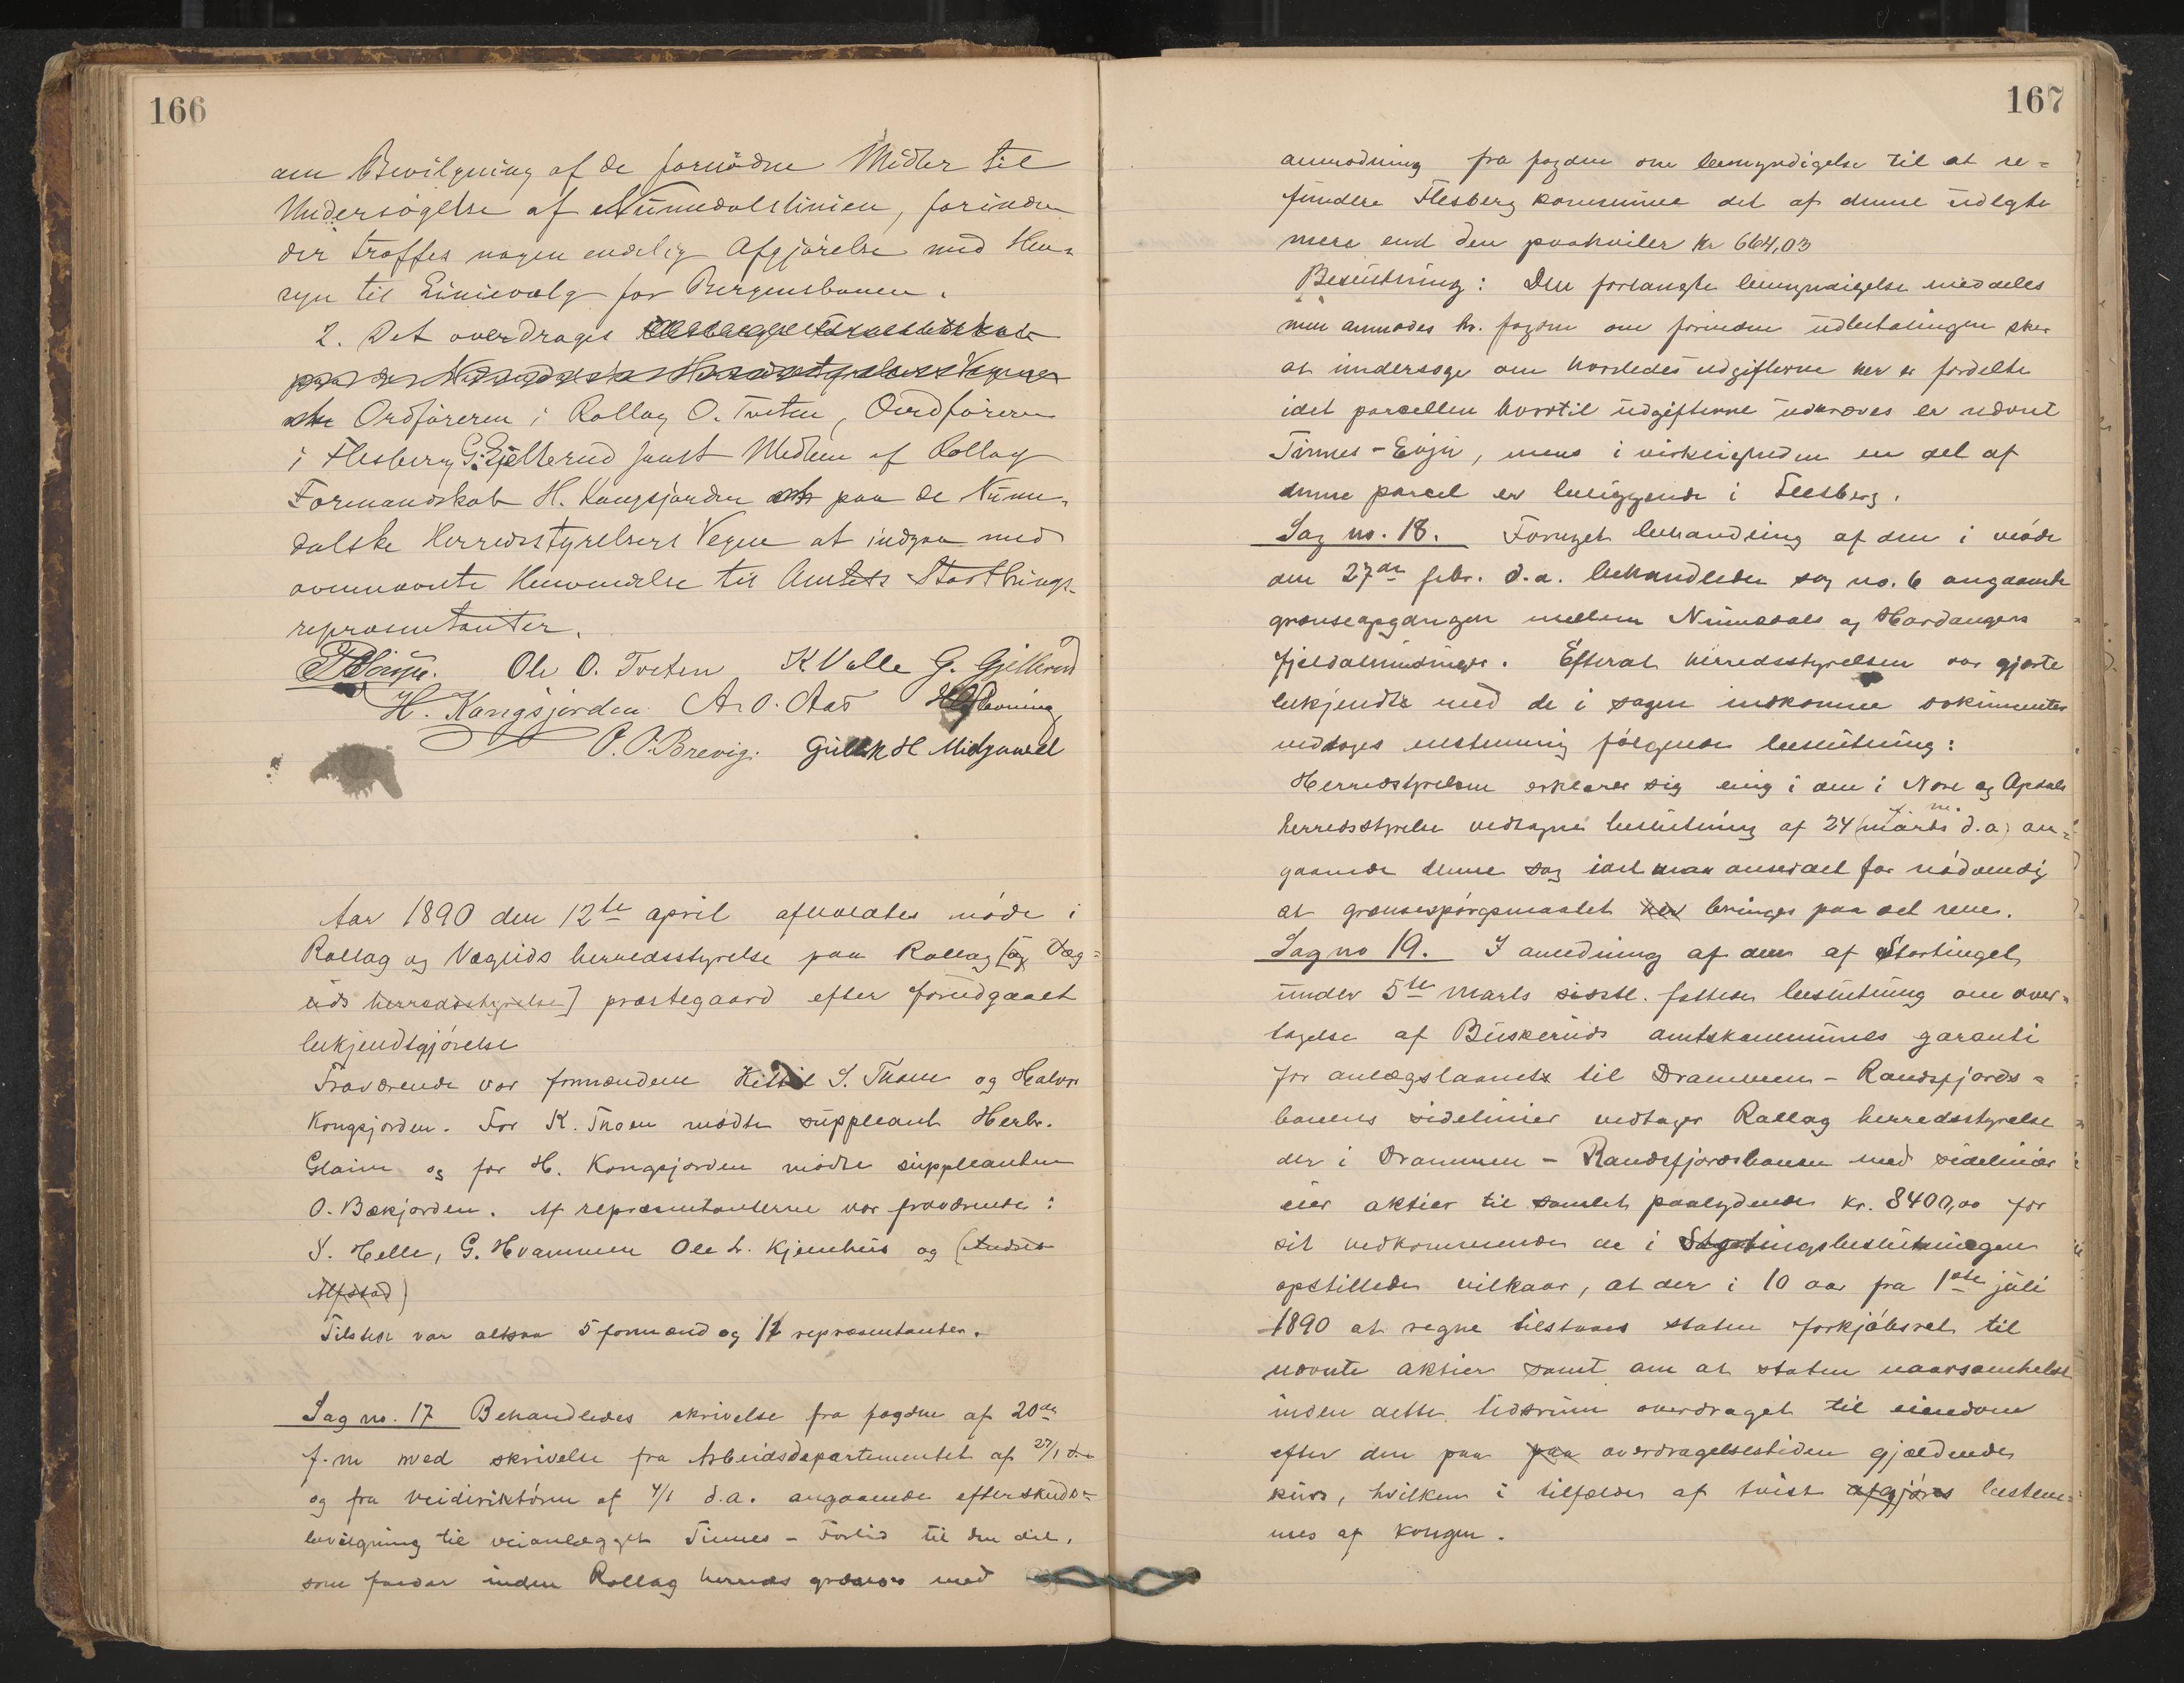 166
om Bevilgning af de fornødne Midler til
Undersøgelse af Numedalslinien, forinden
der træffes nogen endelig Afgjørelse med Hen-
syn til Linievalg for Bergensbanen.
2. Det overdrages
Ordføreren i Rollag O. Tveten, Ordføreren
i Flesberg G. Gjellerud samt Medlem af Rollag
Formandskab H. Kongsjorden paa de Nume-
dalske Herredsstyrelsers Vegne at indgaa med
ovennævnte Henvendelse til Amtets Storthings-
repræsentanter.
Ole O. Tveten K Valle G. Gjellerud
H. Kongsjorden A. O. Aas
O. O. Brevig. Gullek H Midgaard
Aar 1890 den 12te april afholdtes møde i
Rollag og Veglids herredsstyrelse paa Rollag [og Veg=
lids herredsstyrelse] præstegaard efter forudgaaet
bekjendtgjørelse
Fraværende var formændene Kittil S. Thoen og Halvor
Kongsjorden. For K. Thoen mødte suppleant Herbr.
Glaim og for H. Kongsjorden mødte suppleanten
O. Bekjorden. Af repræsentanterne var fraværende:
S. Helle, G. Hvammen Ole H. Kjemhus og (Anders
Alfstad)
Tilstede var altsaa 5 formænd og 11 repræsentanter.
Sag no. 17 Behandledes skrivelse fra fogden af 20de
f.m med skrivelse fra Arbeidsdepartementet af 27/1 d.a
og fra veidirektøren af 4/1 d.a. angaaende efterskuds-
bevilgning til veianlægget Tinnes - Forlid til den del,
som falder inden Rollag herreds grænser med
167
anmodning fra fogden om bemyndigelse til at re=
fundere Flesberg kommune det af denne udlagte
mere end den paahviler kr 664,03
Beslutning: Den forlangte bemyndigelse meddeles
men anmodes hr. fogden om forinden udbetalingen sker
at undersøge om hvorledes udgifterne her er fordelte
idet parcellen hvortil udgifterne udkræves er nævnt
Tinnes - Evju, mens i virkeligheden en del af
denne parcel er beliggende i Flesberg.
Sag no. 18. Fornyet behandling af den i møde
den 27de febr. d.a. behandlede sag no. 6 angaaende
grænseopgangen mellem Numedals og Hardangers
fjeldalmindinger. Efterat herredsstyrelsen var gjorte
bekjendte med de i sagen indkomne dokumenter
vedtoges enstemmig følgende beslutning:
Herredstyrelsen erklærer sig enig i den i Nore og Opdals
f. m.
herredsstyrelse vedtagne beslutning af 24 (marts d.a) an=
gaaende denne sag idet man anser det for nødvendig
at grænsespørgsmaalet her bringes paa det rene.
Sag no 19. I anledning af den af Stortinget
under 5te marts sidstl. fattede beslutning om over=
tagelse af Buskeruds amtskommunes garanti
for anlægslaanets til Drammen - Randsfjords=
banens sidelinier vedtager Rollag herredsstyrelse
der i Drammen - Randsfjordsbanen med sidelinier
eier aktier til samlet paalydende kr. 8400,00 for
sit vedkommende de i Stortingsbeslutningen
opstillede vilkaar, at der i 10 aar fra 1ste juli
1890 at regne tilstaaes staten forkjøbsret til
nævnte aktier samt om at staten naarsomhelst
inden dette tidsrum overdraget til eiendom
efter den paa paa overdragelsestiden gjældende
kurs, hvilken i tilfælde af tvist afgjøres bestem=
mes af kongen.